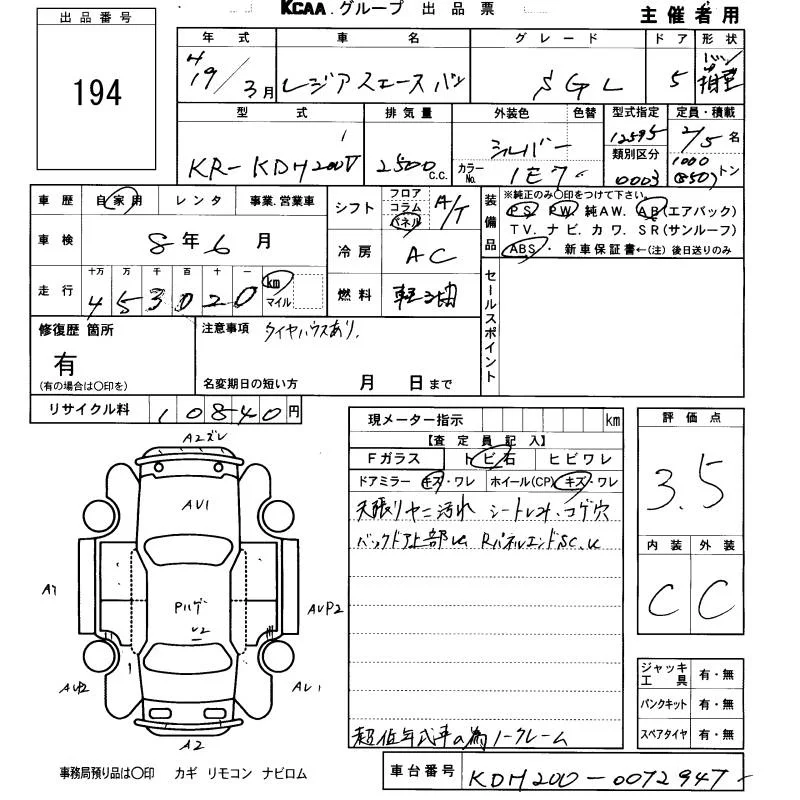 KCAA.グループ 出品票 主催者用
出品番号
194
年式 車名 グレード ドア 形状
H19/3月 レジアスエースバン SGL 5 バン 箱型
型式 排気量 外装色 色替 型式指定 定員・積載
KR-KDH200V 2500 C.C. シルバー カラーNo. 1E7 12595 2/5名
類別区分 0003 1000 (850)トン
車歴 自家用 レンタ 事業.営業車
シフト フロア コラム パネル A/T
装備品 ※純正のみ〇印をつけて下さい。
PS PW 純AW. AB(エアバック)
TV. ナビ. カワ. SR(サンルーフ)
ABS・新車保証書←(注)後日送りのみ
車検 8年6月
冷房 AC
走行 十万 万 千 百 十 一
453020 km マイル
燃料 軽油
セールスポイント
修復歴 箇所 有 (有の場合は〇印を)
注意事項 タイヤハウスあり.
名変期日の短い方 月 日まで
リサイクル料 10840円
現メーター指示 km
【査定員記入】
Fガラス トビ石 ヒビワレ
ドアミラー キズ・ワレ ホイール(CP) キズ・ワレ
天張りヤニ汚れ シートレオ.コゲ穴
バックドア上部U RパネルエンドSC.U
超低年式車の為ノークレーム
評価点
3.5
内装 外装
C C
ジャッキ工具 有・無
パンクキット 有・無
スペアタイヤ 有・無
A2ズレ
AU1
A1
Pハゲ
U2
AUP2
AUP2
AU1
A2
事務局預り品は〇印 カギ リモコン ナビロム
車台番号 KDH200-0072947-